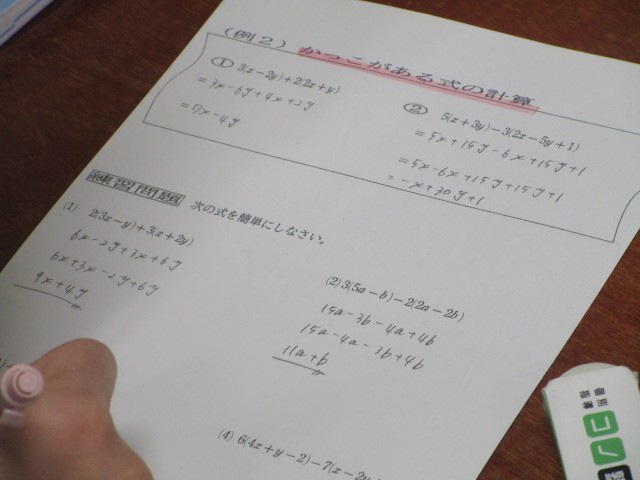 (例2) かっこがある式の計算
① 3(x−2y)+2(2x+y)
=3x−6y+4x+2y
=7x−4y
② 5(x+3y)−3(2x−5y+1)
=5x+15y−6x+15y+1
=5x−6x+15y+15y+1
=−x+30y+1
練習問題 次の式を簡単にしなさい。
(1) 2(3x−y)+3(x+2y)
6x−2y+3x+6y
6x+3x−2y+6y
9x+4y
(2) 3(5a−b)−2(2a−2b)
15a−3b−4a+4b
15a−4a−3b+4b
11a+b
(4) 6(4x+y−2)−7(x−2y